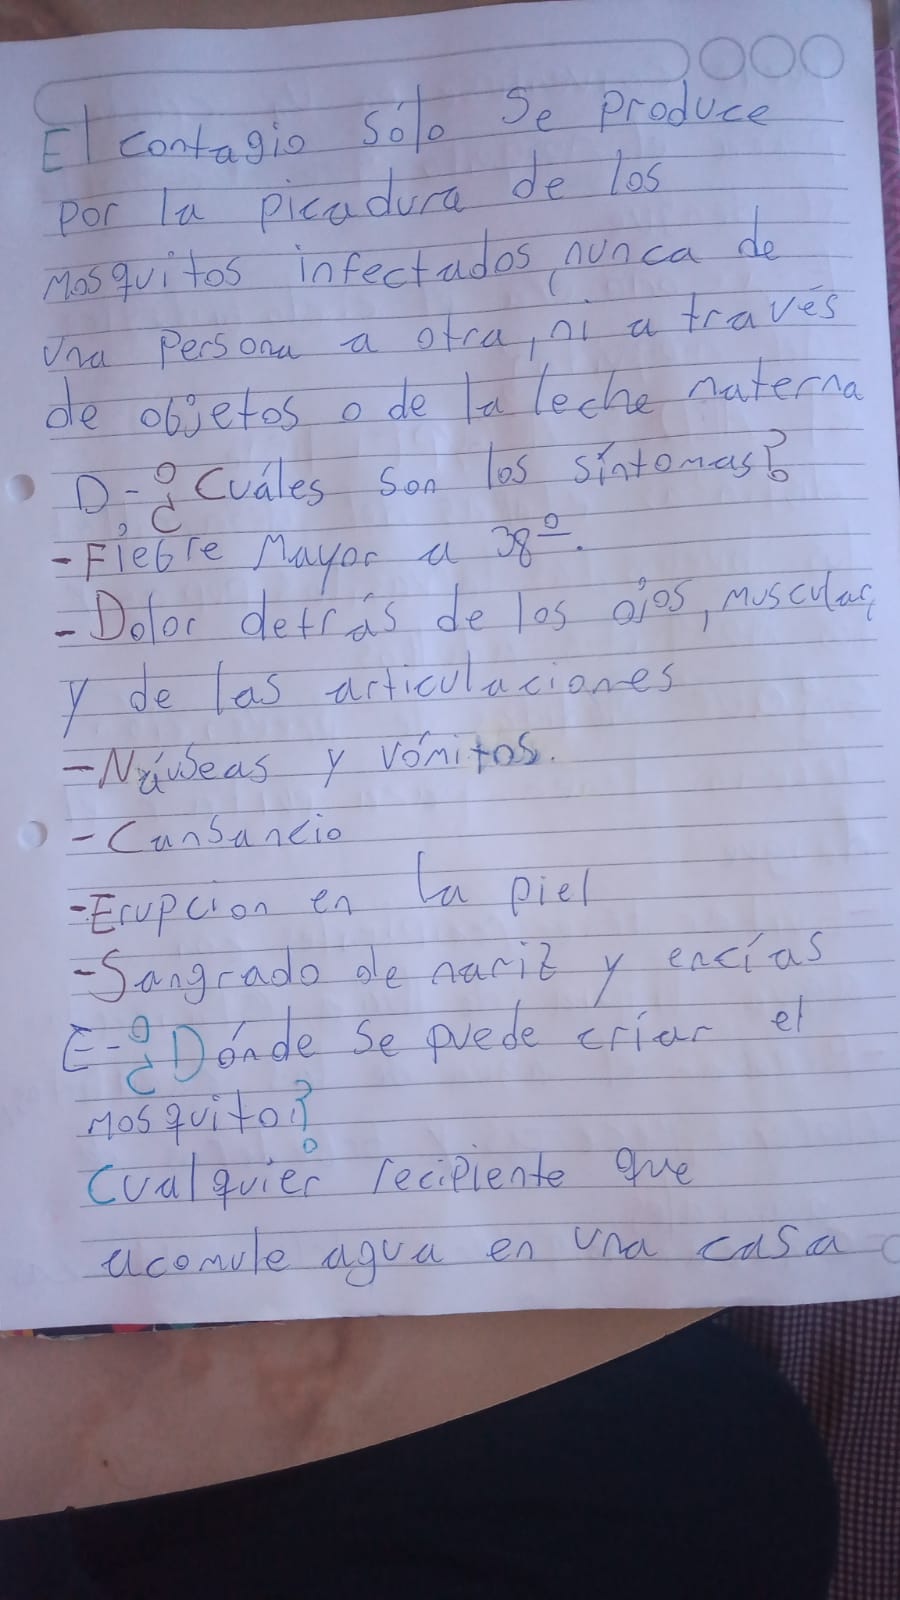 El contagio sólo se produce
por la picadura de los
mosquitos infectados, nunca de
una persona a otra, ni a través
de objetos o de la leche materna
D-¿Cuáles son los síntomas?
-Fiebre mayor a 38º.
-Dolor detrás de los ojos, muscular,
y de las articulaciones
-Náuseas y vómitos.
-Cansancio
-Erupcion en la piel
-Sangrado de nariz y encías
E-¿Dónde se puede críar el
mosquito?
Cualquier recipiente que
acomule agua en una casa